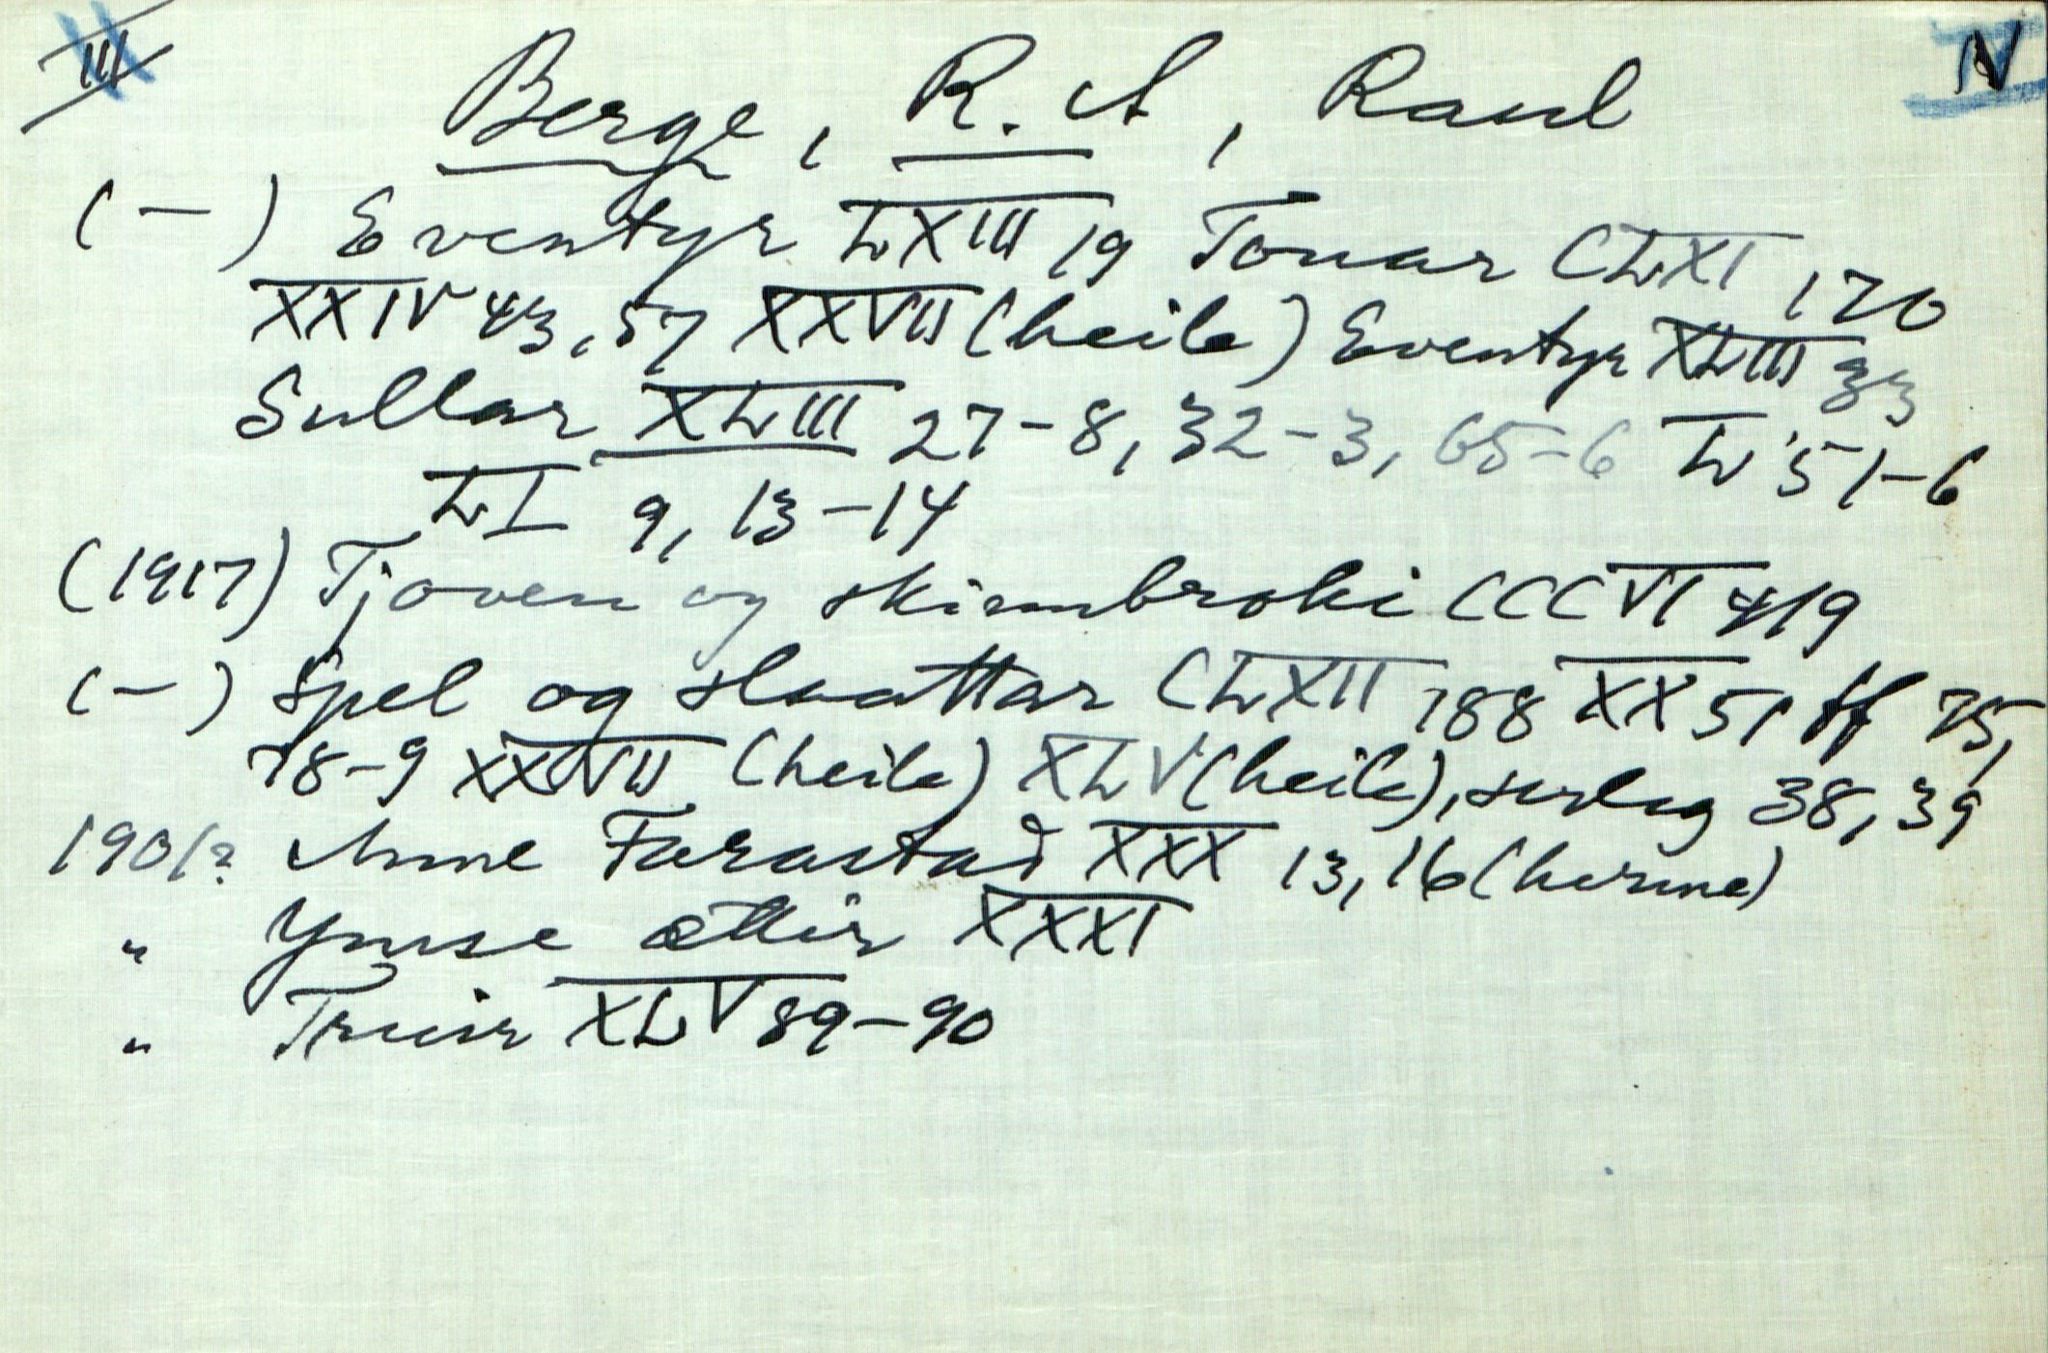 III IV
Berge, R. A, Raul
(-) Eventyr LXIII 19 Tonar CLXI 170
XXIV 43, 57 XXVII (heile) Eventyr XLIII 33
Sullar XLIII 27-8, 32-3, 65-6 L 51-6
LI 9, 13-14
(1917) Tjoven og skinnbroki CCCVI 419
(-) Spel og slaattar CLXII 188 XX 51 ff 75,
78-9 XXVII (heile) XLV (heile), serleg 38, 39
1901? Anne Farastad XXX 13, 16 (herme)
" Ymse ættir XXXI
" Truir XLV 89-90